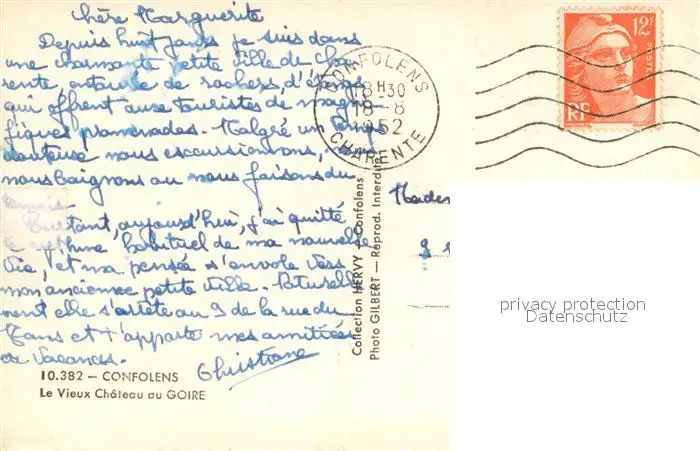 Chère Marguerite
Depuis huit jours je suis dans
une charmante petite ville de Cha
rente, entourée de rochers, d'étangs
qui offrent aux touristes de magni
fiques promenades. Malgré un temps
douteux nous excursionnons, 
nous baignons ou nous faisons du
Pourtant, aujourd'hui, j'ai quitté
le rythme habituel de ma nouvelle
vie, et ma pensée s'envole vers
mon ancienne petite ville. Naturelle
ment elle s'arrête au 9 de la rue du
Mans et t'apporte mes amitiés
de vacances.
Christiane
10.382 — CONFOLENS
Le Vieux Château du GOIRE
Collection HERVY — Confolens
Photo GILBERT — Reprod. Interdite
CONFOLENS
18H30
18-8
1952
CHARENTE
12F
POSTES
RF
privacy protection
Datenschutz